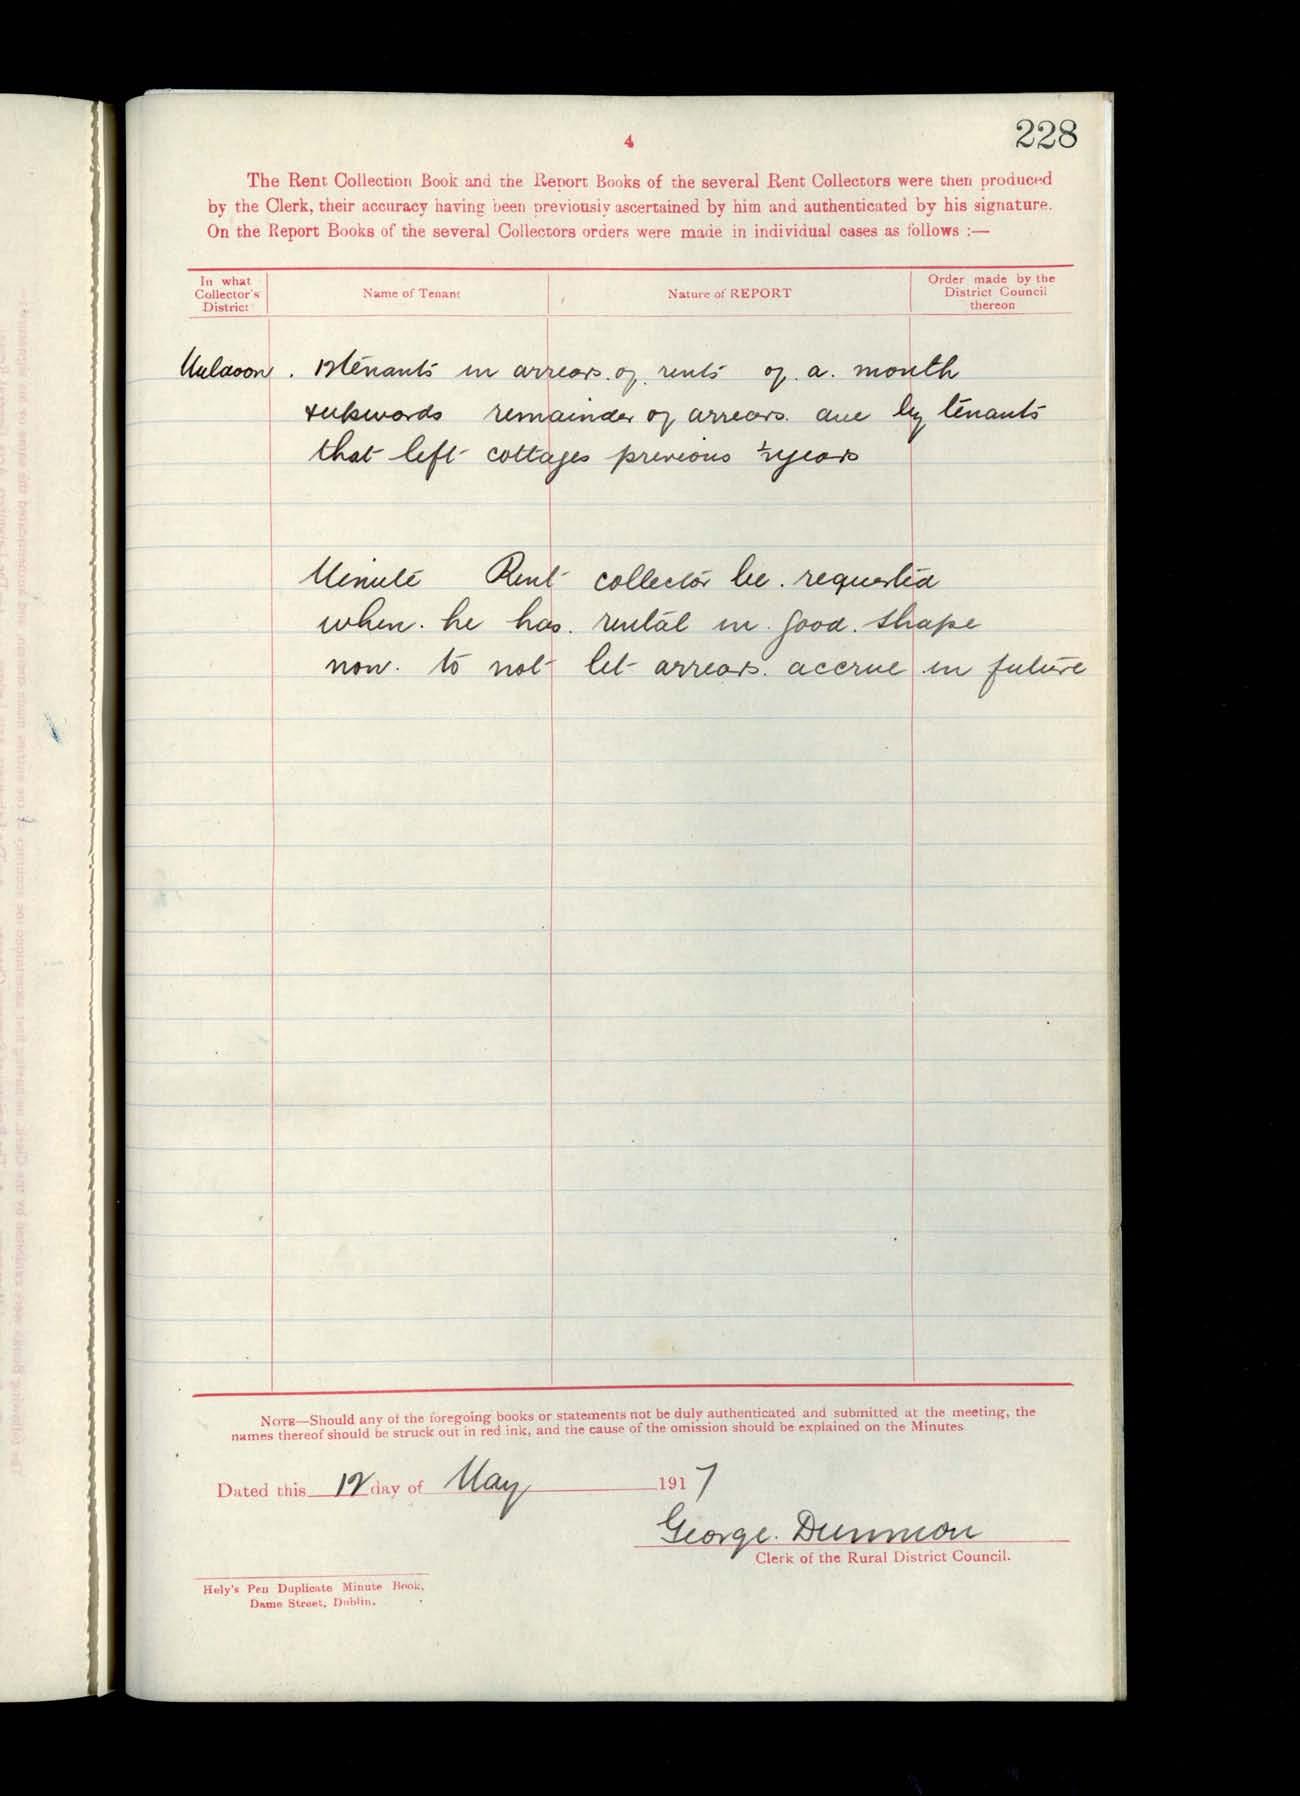 228
4
The Rent Collection Book and the Report Books of the several Rent Collectors were then produced
by the Clerk, their accuracy having been previously ascertained by him and authenticated by his signature.
On the Report Books of the several Collectors orders were made in individual cases as follows :—
In what
Collector's
District
Name of Tenant
Nature of REPORT
Order made by the
District Council
thereon
Muldoon. 12 tenants in arrears of rents of a month
& upwards remainder of arrears due by tenants
that left cottages previous ½ years
Minute Rent collector be requested
when he has rental in good shape
now to not let arrears accrue in future
NOTE—Should any of the foregoing books or statements not be duly authenticated and submitted at the meeting, the
names thereof should be struck out in red ink, and the cause of the omission should be explained on the Minutes
Dated this 12 day of May 1917
George
Clerk of the Rural District Council.
Hely's Pen Duplicate Minute Book,
Dame Street, Dublin.